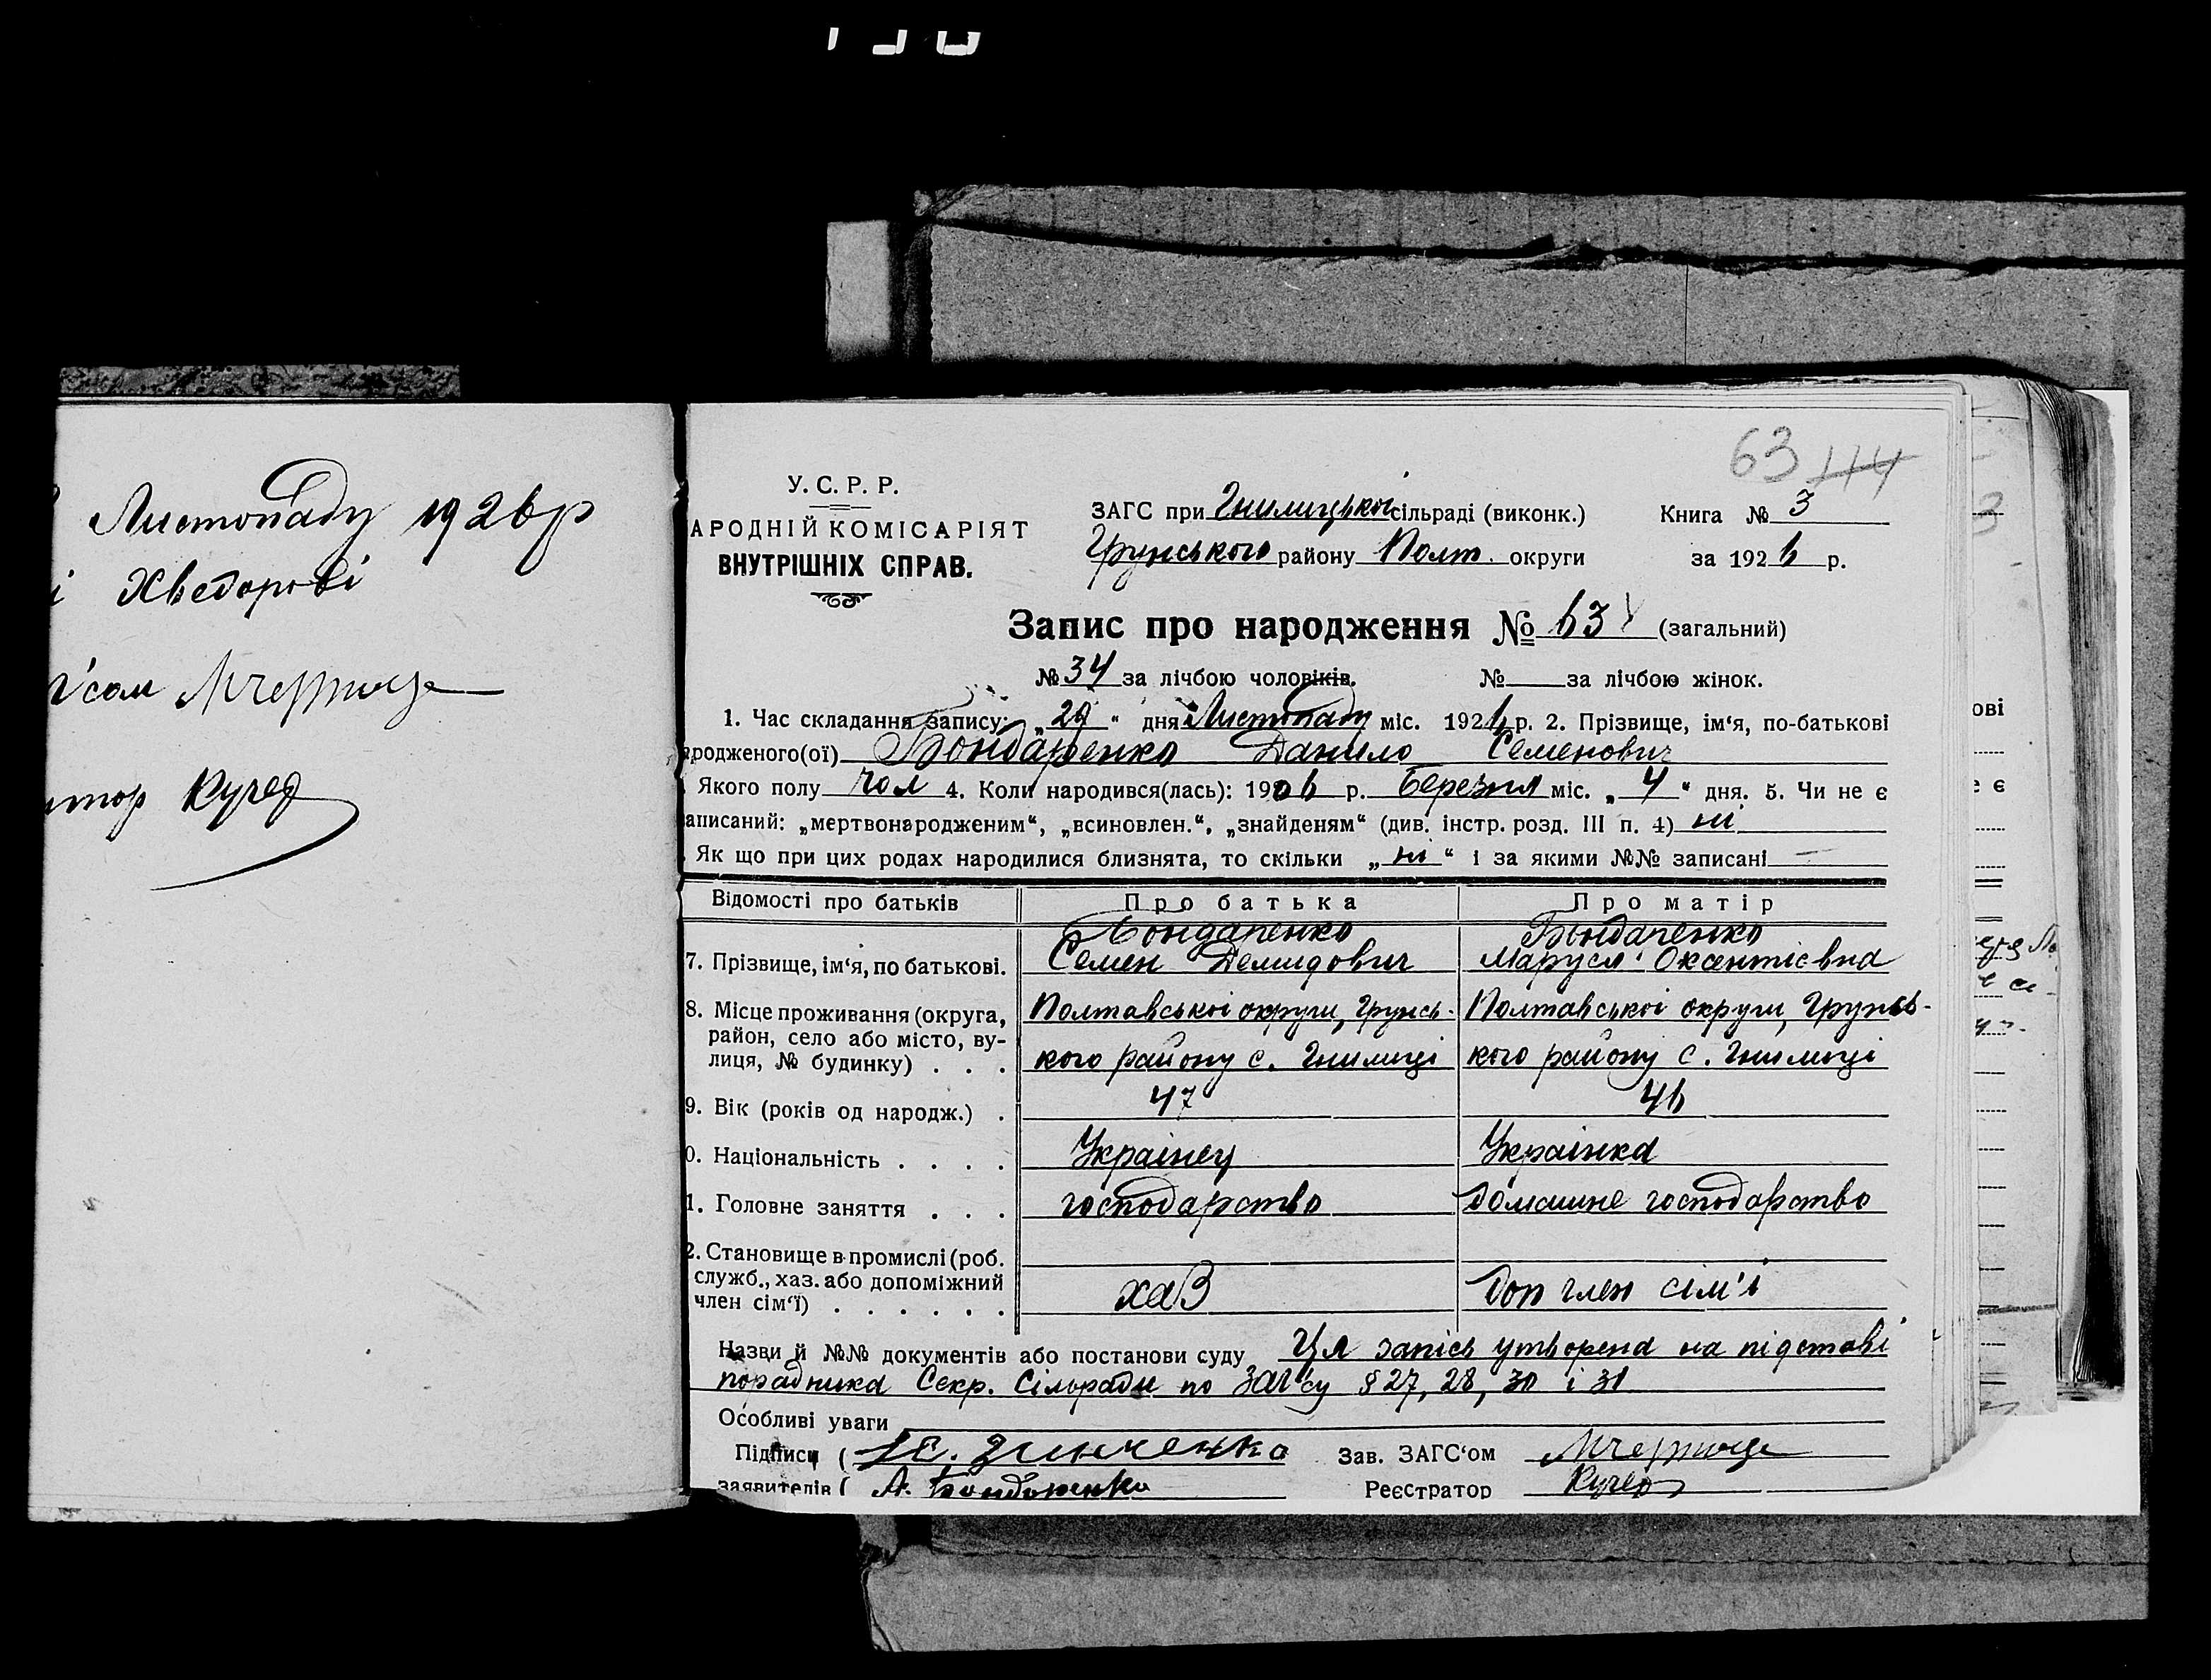 Листопаду 1926 р
і Хведорові
Кучер
63 114
У. С. Р. Р.
АРОДНІЙ КОМІСАРІЯТ
ВНУТРІШНІХ СПРАВ.
ЗАГС при Гнилицької сільраді (виконк.) Книга № 3
Грунського району Полт. округи за 1926 р.
Запис про народження № 63 (загальний)
№ 34 за лічбою чоловіків. № за лічбою жінок.
1. Час складання запису: „29“ дня Листопаду міс. 1926 р. 2. Прізвище, ім‘я, по-батькові
ародженого(ої) Бондаренко Данило Семенович
Якого полу чол 4. Коли народився(лась): 1906 р. Березня міс. „4“ дня. 5. Чи не є
аписаний: „мертвонародженим“, „всиновлен.“, „знайденям“ (див. інстр. розд. III п. 4) ні
Як що при цих родах народилися близнята, то скільки „ні“ і за якими №№ записані —
Відомості про батьків Про батька Про матір
Бондаренко Бондаренко
7. Прізвище, ім‘я, по батькові. Семен Демидович Маруся Оксентієвна
8. Місце проживання (округа, Полтавської округи, Грунсь- Полтавської округи, Грунсь-
район, село або місто, ву-
лиця, № будинку) . . . кого району с. Гнилиці кого району с. Гнилиці
9. Вік (років од народж.) . 47 46
0. Національність . . . . Українец Українка
1. Головне заняття . . . господарство домашне господарство
2. Становище в промислі (роб.
служб., хаз. або допоміжний хаз Доп член сім'ї
член сім‘ї) . . . . . .
Назви й №№ документів або постанови суду Ця запісь утворена на підставі
порадника Секр. Сільради по ЗАГ'су § 27, 28, 30 і 31
Особливі уваги
Підписи ( Зинченко Зав. ЗАГС‘ом
заявителів ( А. Бондаренко Реєстратор Кучер